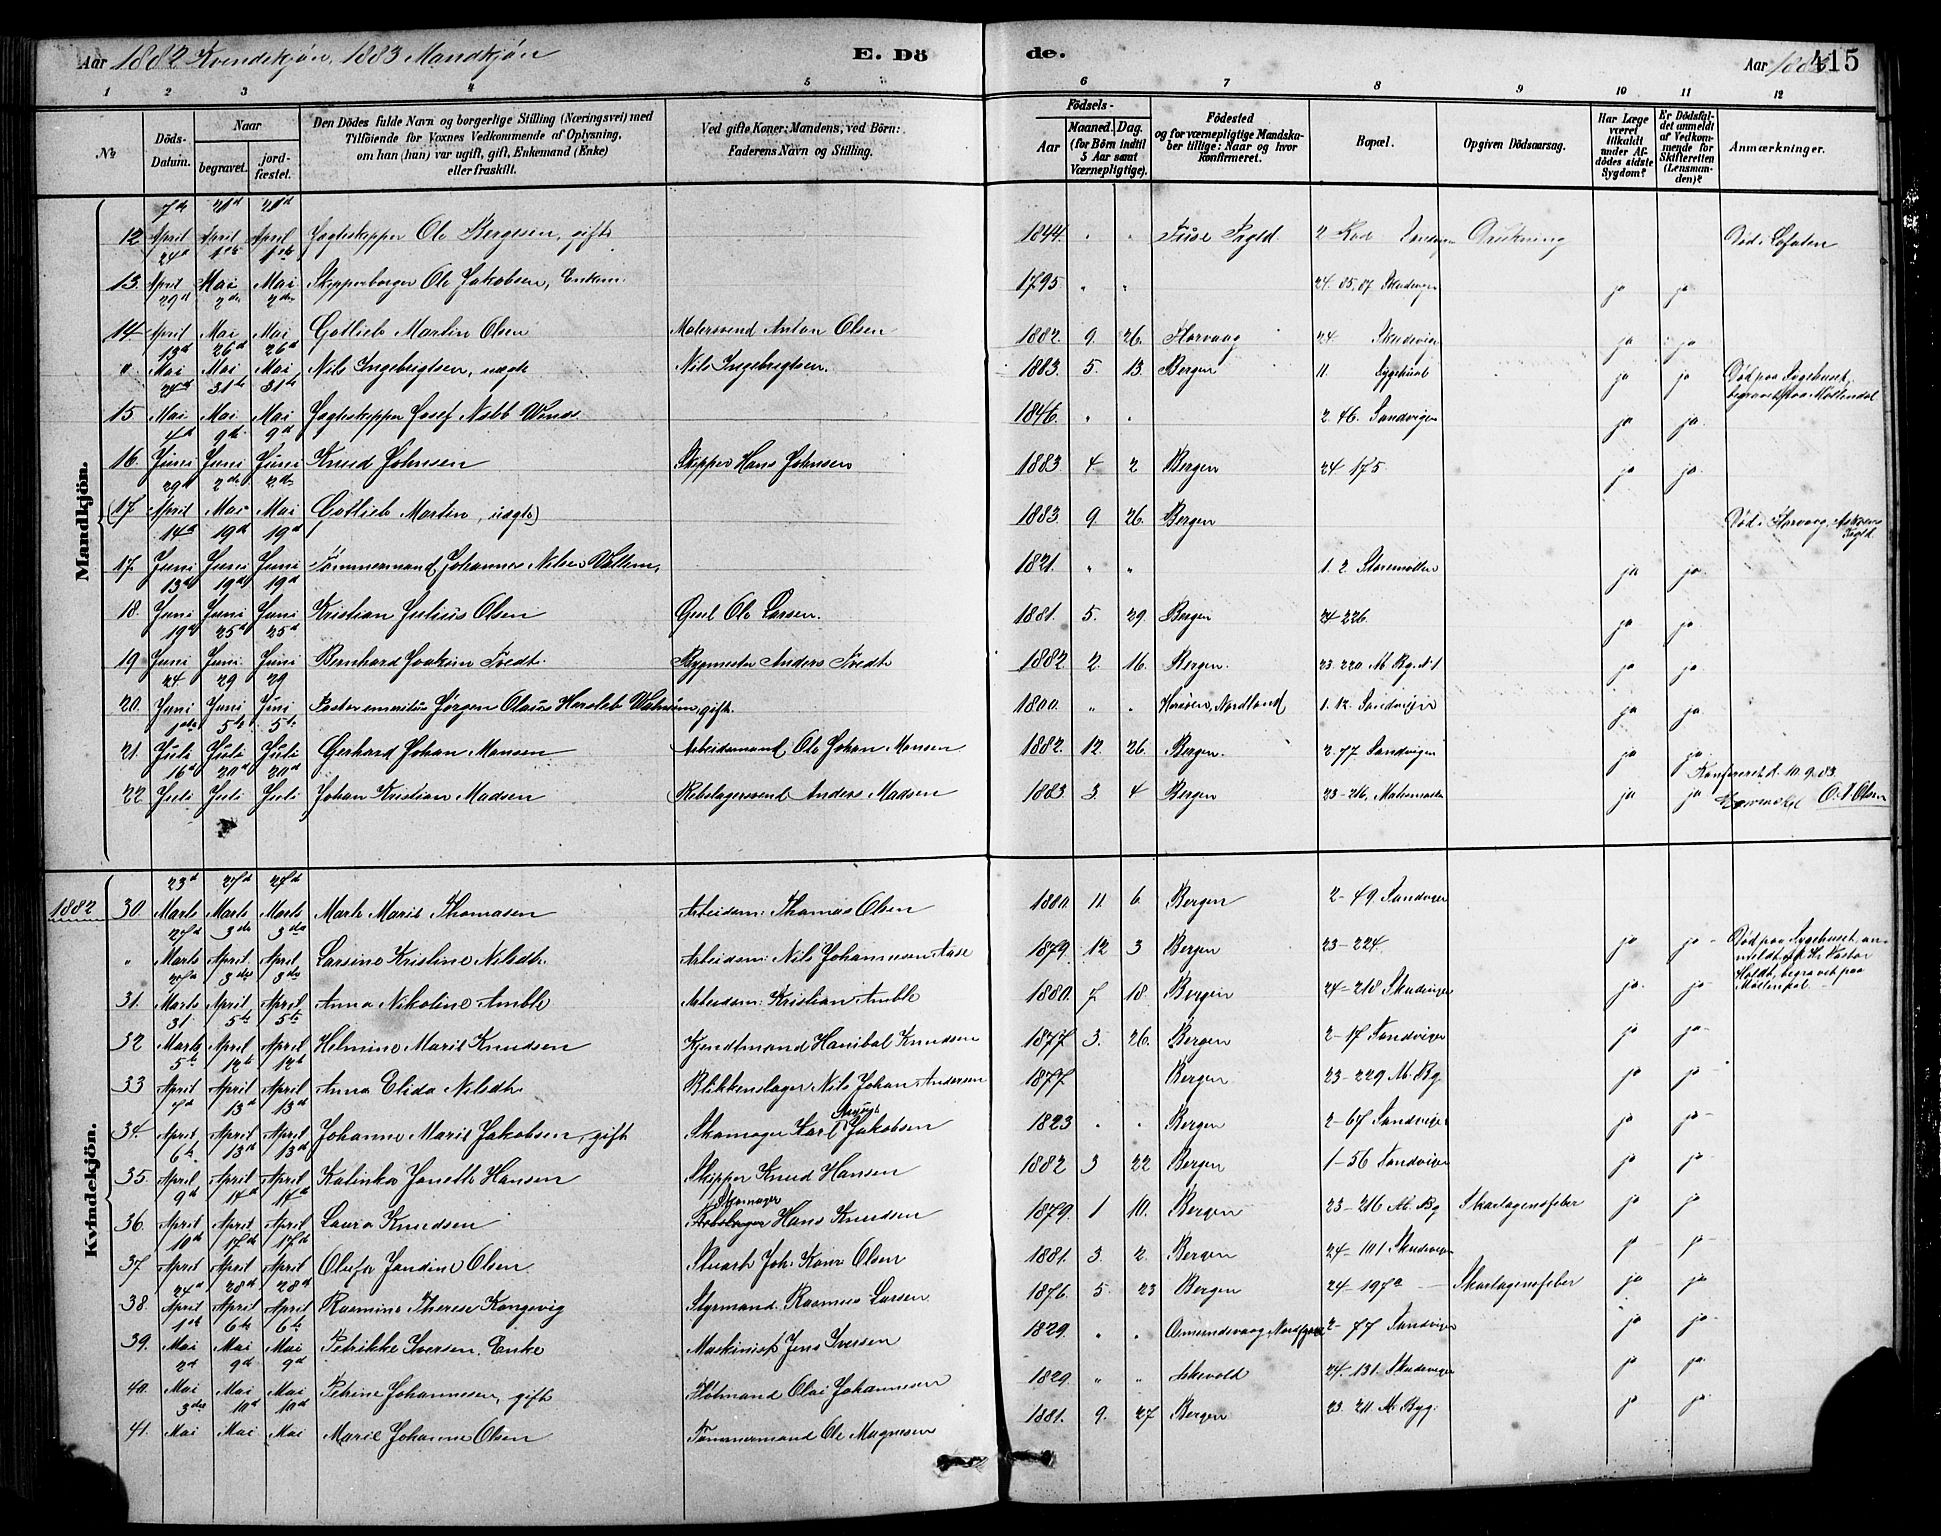 Aar 1882 Kvindekjön, 1883 Mandkjön E. Dö de. Aar 188 415
1 2 3 4 5 6 7 8 9 10 11 12
№ Döds-Datum. Naar begravet. jordfæstet. Den Dödes fulde Navn og borgerlige Stilling (Næringsvei) med Tilföiende for Voxnes Vedkommende af Oplysning, om han (hun) var ugift, gift, Enkemand (Enke) eller fraskilt. Ved gifte Koner: Mandens, ved Börn: Faderens Navn og Stilling. Födsels- Aar Maaned. Dag. (for Börn indtil 5 Aar samt Værnepligtige). Födested og for værnepligtige Mandskaber tillige: Naar og hvor Konfirmeret. Bopæl. Opgiven Dödsaarsag. Har Læge været tilkaldt under Afdödes sidste Sygdom? Er Dödsfaldet anmeldt af Vedkommende for Skifteretten (Lensmanden)? Anmærkninger.
Mandkjön.
12 7de April 21d April 21d April Jagteskipper Ole Bergesen, gift 1844 " " Fuse Prgld. 2 Sandvigen Drukning Död i Lofoten
13. 24d April 1ste Mai 1ste Mai Skipperborger Ole Jakobsen, Enkem. 1795 " " 24. 85, 87 Skudevigen ja ja
14. 29d April 2den Mai 2den Mai Gotlieb Martin Olsen Malersvend Anton Olsen 1882. 9. 26. Florvaag 24 Skudevigen ja ja
" 13d Mai 26d Mai 26d Mai Nils Ingebrigtsen, uægte Nils Ingebrigtsen. 1883. 5. 13. Bergen 11. Sygehuset ja ja Död paa Sygehuset, begravet paa Möllendal
15 24d Mai 31te Mai 31te Mai Jagteskipper Josef Nebb 1846. " " 2. 46. Sandvigen ja ja
16. 4d Juni 9de Juni 9d Juni Knud Johnsen Skipper Hans Johnsen 1883 4 2 Bergen 24 175. ja ja
(17 29d April 2den Mai 2den Mai Gotlieb Martin, uægte) 1883. 9. 26. Bergen Död i Florvaag, Askøens Prgld.
17. 14d Juni 19d Juni 19d Juni Tömmermand Johannes Nilsen Vallem, 1821. " " 1. 2. Storemöllen ja ja
18. 13d Juni 19d Juni 19d Juni Kristian Julius Olsen Ole Larsen. 1881. 5. 29. Bergen 24 226. ja ja
19 19d Juni 25d Juni 25d Juni Bernhard Joakim Tvedt. Bygmester Anders Tvedt 1882 2. 16. Bergen. 23. 220 M. Bg. ja ja
20. 24. Juni 29 Juni 29 Juni Pastor emeritus Jörgen Olaus Hersleb Walnum, gift. 1800. " " Herøen, Nordland 1. 12. Sandvigen ja ja
21. 1ste Juli 5te Juli 5te Juli Gerhard Johan Monsen Arbeidsmand Ole Johan Monsen 1882. 12. 26. Bergen. 2. 77 Sandvigen ja ja
22 16d Juli 20d Juli 20d Juli Johan Kristian Madsen Rebslagersvend Anders Madsen 1883. 3. 4 Bergen 23-216, ja ja Konfereret d. 10.9.83 O.A. Olsen
1882
Kvindekjön.
30. 23d Marts 27d Marts 27d Marts Marte Marie Thomasen Arbeidsm: Thomas Olsen 1880. 11 6 Bergen 2-49. Sandvigen
" 27d Marts 3die April 3die April Larsine Kristine Nilsdtr. Arbeidsm: Nils Johannesen Aase 1879. 12 3 Bergen 23-224. ja ja Död paa Sygehuset, anmeldt af Hr. Pastor Holdt, begravet paa Möllendal
31. Marts 3die April 3die April Anna Nikoline Amble Arbeidsm: Kristian Amble 1880. 7 18. Bergen 24-218 Skudevigen ja ja
32 31. Marts 5te April 5te April Helmine Marie Knudsen Hanibal Knudsen 1877. 3. 26. Bergen 2-17 Sandvigen ja ja
33 5te April 12te April 12te April Anna Elida Nilsdtr. Blikkenslager Nils Johan Andersen 1877 Bergen 23-229 M. Bg. ja ja
34. 7d April 13d April 13d April Johanne Marie Jakobsen, gift Skomager Karl August Jakobsen 1823 " " Bergen 2-67 Sandvigen ja ja
35. 6te April 13d April 13d April Katinka Janette Hansen Skipper Knud Hansen 1882 3 22 Bergen 1-56 Sandvigen ja ja
36. 9d April 14d April 14d April Laura Knudsen Rebslager Skomager Hans Knudsen 1879. 1 10. Bergen 23-216 M. Bg Skarlagensfeber ja ja
37. 10d April 17d April 17d April Olufa Jandine Olsen. Stuert Joh. Konr Olsen 1881. 3. 2. Bergen 24-101 Skudevigen ja ja
38. 24d April 28d April 28d April Rasmine Therese Kongevig Styrmand. Rasmus Larsen 1876. 5. 23 Bergen 24-197a Skarlagensfeber ja ja
39. 1ste Mai 6te Mai 6te Mai Petrikke Iversen. Enke Maskinist Jens Iversen 1829. " " 2-77 Sandvigen ja ja
40. 2d Mai 9d Mai 9d Mai Petrine Johannesen, gift Flötmand Olai Johannesen 1829. " " Askevold 24. 131. Skudevigen ja ja
41. 3die Mai 10d Mai 10d Mai Marie Johanne Olsen Tömmermand Ole Magnesen 1881. 9. 27 Bergen 23. 211 M. Byg. ja ja